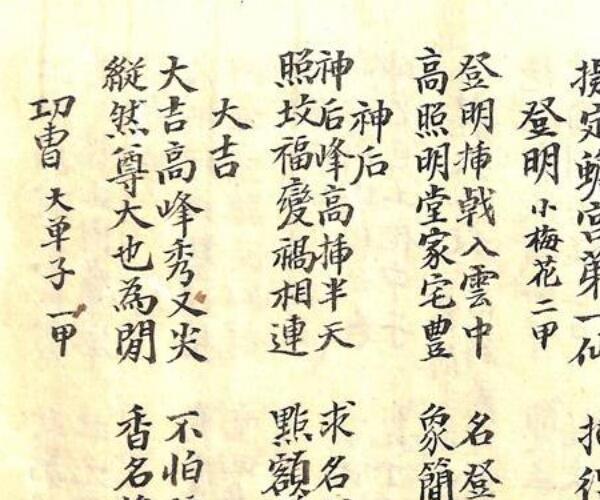 定蟾宮第一仙
登明 小梅花二甲
登明挿戟入雲中 名登
高照明堂家宅豐 象簡
神后
神后峰高挿半天 求名
照坟福變禍相連 點額
大吉
大吉高峰秀又尖 不怕
縱然尊大也為閒 香名
功曹 大单子一甲